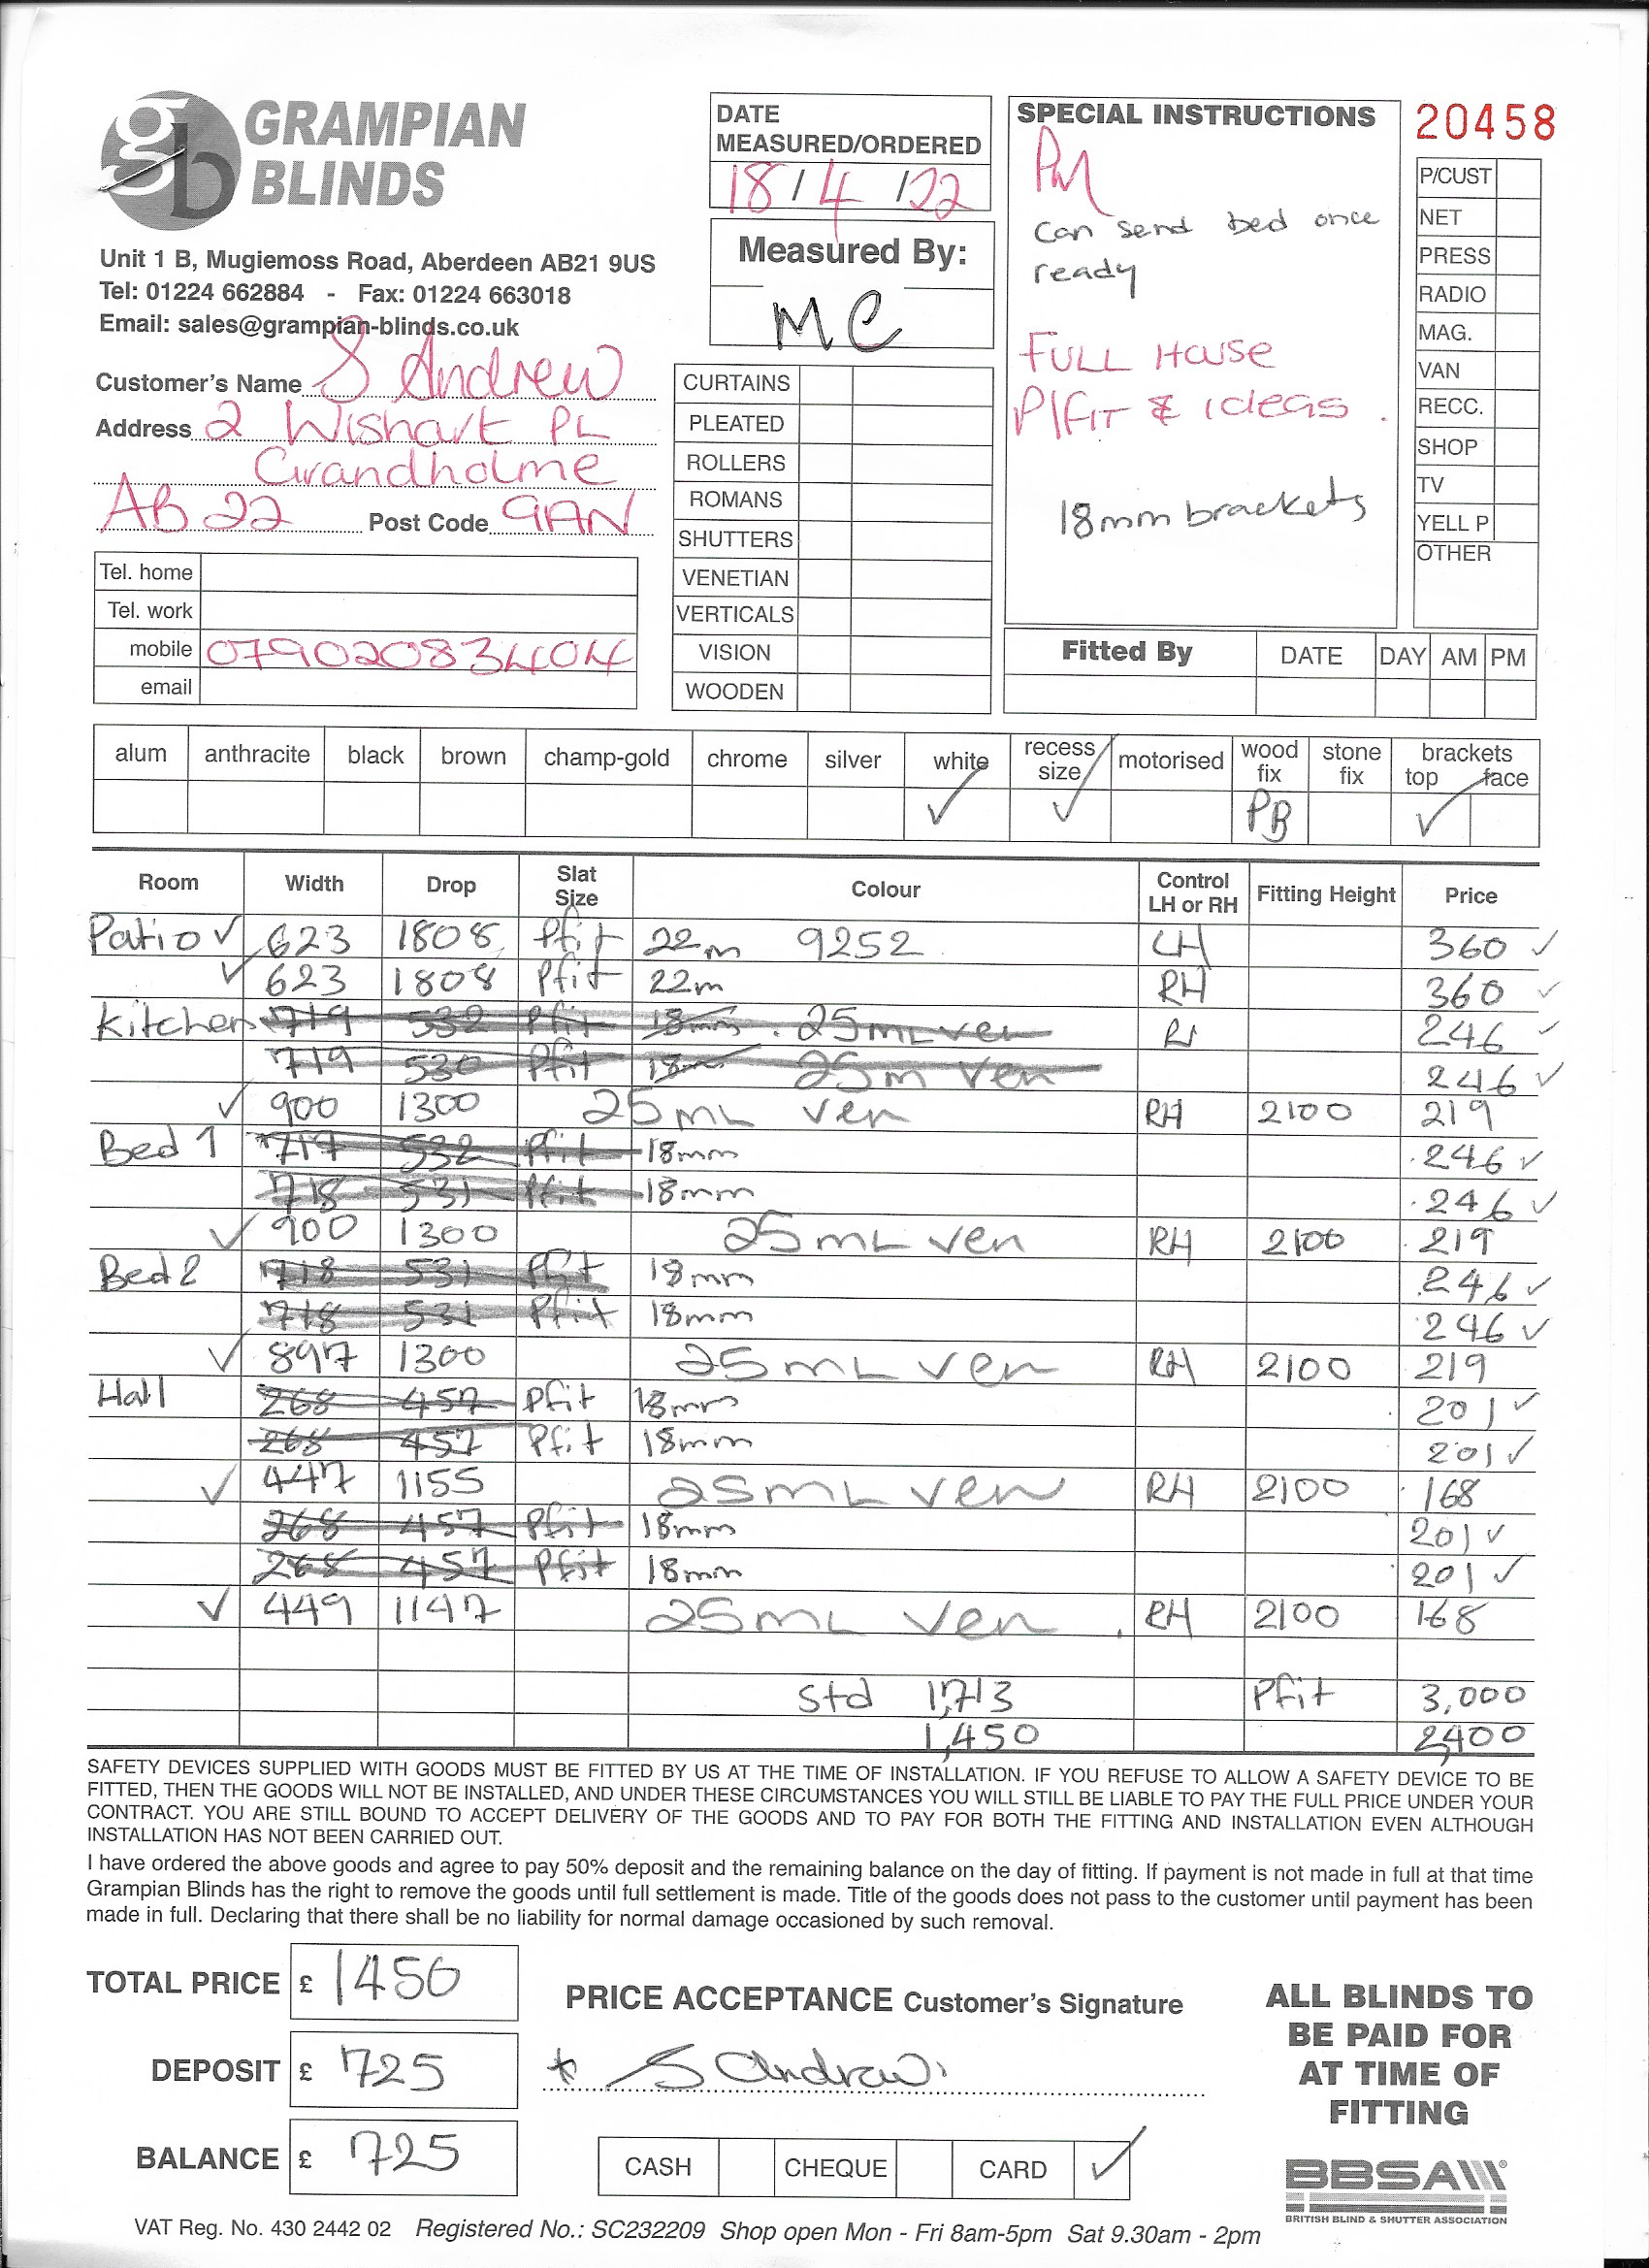 GRAMPIAN
BLINDS
Unit 1 B, Mugiemoss Road, Aberdeen AB21 9US
Tel: 01224 662884 - Fax: 01224 663018
Email: sales@grampian-blinds.co.uk
Customer's Name S Andrew
Address 2 Wishart PL
Grandholme
AB22 Post Code 9AN
Tel. home
Tel. work
mobile 07902083404
email
DATE
MEASURED/ORDERED
18/4/22
Measured By:
MC
CURTAINS
PLEATED
ROLLERS
ROMANS
SHUTTERS
VENETIAN
VERTICALS
VISION
WOODEN
SPECIAL INSTRUCTIONS
PM
can send bed once
ready
FULL House
P/FIT & ideas.
18mm brackets
20458
P/CUST
NET
PRESS
RADIO
MAG.
VAN
RECC.
SHOP
TV
YELL P
OTHER
Fitted By DATE DAY AM PM
alum anthracite black brown champ-gold chrome silver white recess size motorised wood fix stone fix brackets top face
✓ ✓ PB ✓
Room Width Drop Slat Size Colour Control LH or RH Fitting Height Price
Patio ✓ 623 1808 Pfit 22m 9252 LH 360 ✓
✓ 623 1808 Pfit 22m RH 360 ✓
Kitchen 719 532 Pfit 18mm. 25mL ven 246 ✓
719 530 Pfit 18m 25m Ven 246 ✓
✓ 900 1300 25mL ven RH 2100 219
Bed 1 717 532 Pfit 18mm 246 ✓
718 531 Pfit 18mm 246 ✓
✓ 900 1300 25mL ven RH 2100 219
Bed 2 718 531 Pfit 18mm 246 ✓
718 531 Pfit 18mm 246 ✓
✓ 897 1300 25mL ven RH 2100 219
Hall 268 457 Pfit 18mm 201 ✓
268 457 Pfit 18mm 201 ✓
✓ 447 1155 25mL ven RH 2100 168
268 457 Pfit 18mm 201 ✓
268 457 Pfit 18mm 201 ✓
✓ 449 1147 25mL ven RH 2100 168
Std 1,713 Pfit 3,000
1,450 2,400
SAFETY DEVICES SUPPLIED WITH GOODS MUST BE FITTED BY US AT THE TIME OF INSTALLATION. IF YOU REFUSE TO ALLOW A SAFETY DEVICE TO BE
FITTED, THEN THE GOODS WILL NOT BE INSTALLED, AND UNDER THESE CIRCUMSTANCES YOU WILL STILL BE LIABLE TO PAY THE FULL PRICE UNDER YOUR
CONTRACT. YOU ARE STILL BOUND TO ACCEPT DELIVERY OF THE GOODS AND TO PAY FOR BOTH THE FITTING AND INSTALLATION EVEN ALTHOUGH
INSTALLATION HAS NOT BEEN CARRIED OUT.
I have ordered the above goods and agree to pay 50% deposit and the remaining balance on the day of fitting. If payment is not made in full at that time
Grampian Blinds has the right to remove the goods until full settlement is made. Title of the goods does not pass to the customer until payment has been
made in full. Declaring that there shall be no liability for normal damage occasioned by such removal.
TOTAL PRICE £ 1450
DEPOSIT £ 725
BALANCE £ 725
PRICE ACCEPTANCE Customer's Signature
* S Andrew
CASH CHEQUE CARD ✓
ALL BLINDS TO
BE PAID FOR
AT TIME OF
FITTING
BBSA
BRITISH BLIND & SHUTTER ASSOCIATION
VAT Reg. No. 430 2442 02 Registered No.: SC232209 Shop open Mon - Fri 8am-5pm Sat 9.30am - 2pm